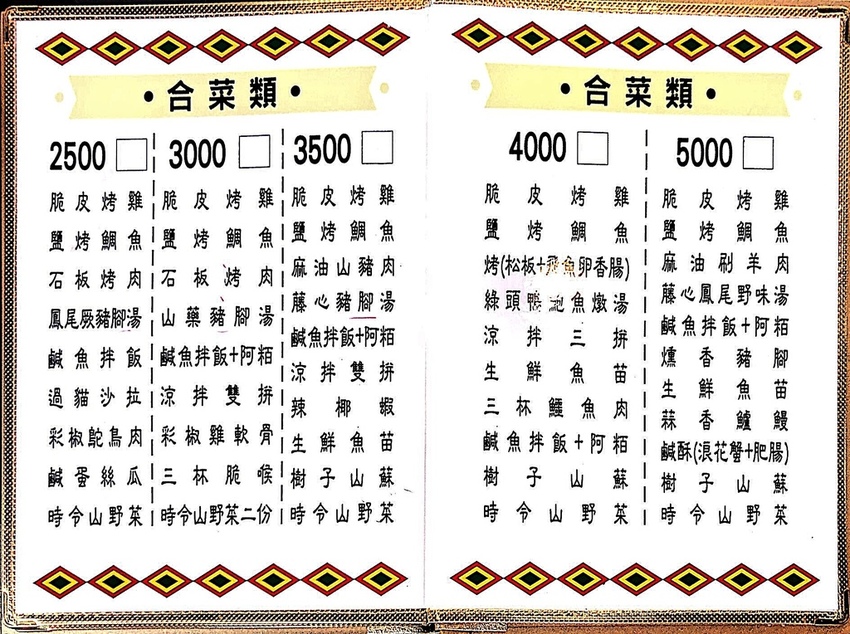 •合菜類•
2500
脆皮烤雞
鹽烤鯛魚
石板烤肉
鳳尾厥豬腳湯
鹹魚拌飯
過貓沙拉
彩椒鴕鳥肉
鹹蛋絲瓜
時令山野菜
3000
脆皮烤雞
鹽烤鯛魚
石板烤肉
山藥豬腳湯
鹹魚拌飯+阿粨
涼拌雙拼
彩椒雞軟骨
三杯脆喉
時令山野菜二份
3500
脆皮烤雞
鹽烤鯛魚
麻油山豬肉
藤心豬腳湯
鹹魚拌飯+阿粨
涼拌雙拼
辣椰蝦
生鮮魚苗
樹子山蘇
時令山野菜
•合菜類•
4000
脆皮烤雞
鹽烤鯛魚
烤(松板+飛魚卵香腸)
綠頭鴨鮑魚燉湯
涼拌三拼
生鮮魚苗
三杯鱷魚肉
鹹魚拌飯+阿粨
樹子山蘇
時令山野菜
5000
脆皮烤雞
鹽烤鯛魚
麻油刷羊肉
藤心鳳尾野味湯
鹹魚拌飯+阿粨
燻香豬腳
生鮮魚苗
蒜香鱸鰻
鹹酥(浪花蟹+肥腸)
樹子山蘇
時令山野菜